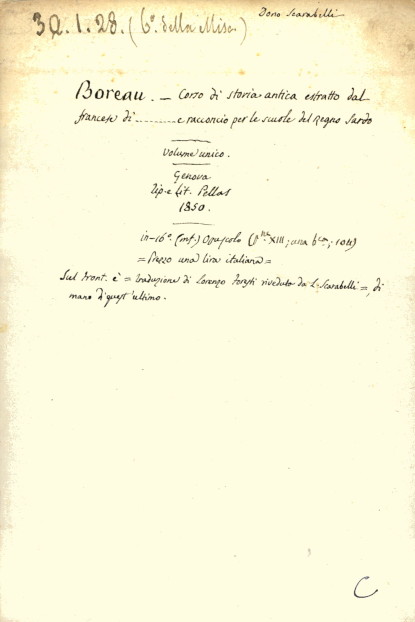 Dono Scarabelli
3Q.1.28. (6ª della Misc.)
Boreau. — Corso di storia antica estratto dal
francese di ............ e racconcio per le scuole del Regno Sardo
Volume unico.
Genova
Tip. e Lit. Pellas
1850.
in-16º. (leg.) Opuscolo XIII; 104)
= Prezzo una lira italiana =
Sul front. è = traduzione di Lorenzo Foresti riveduto da L. Scarabelli =, di
mano di quest'ultimo.
C